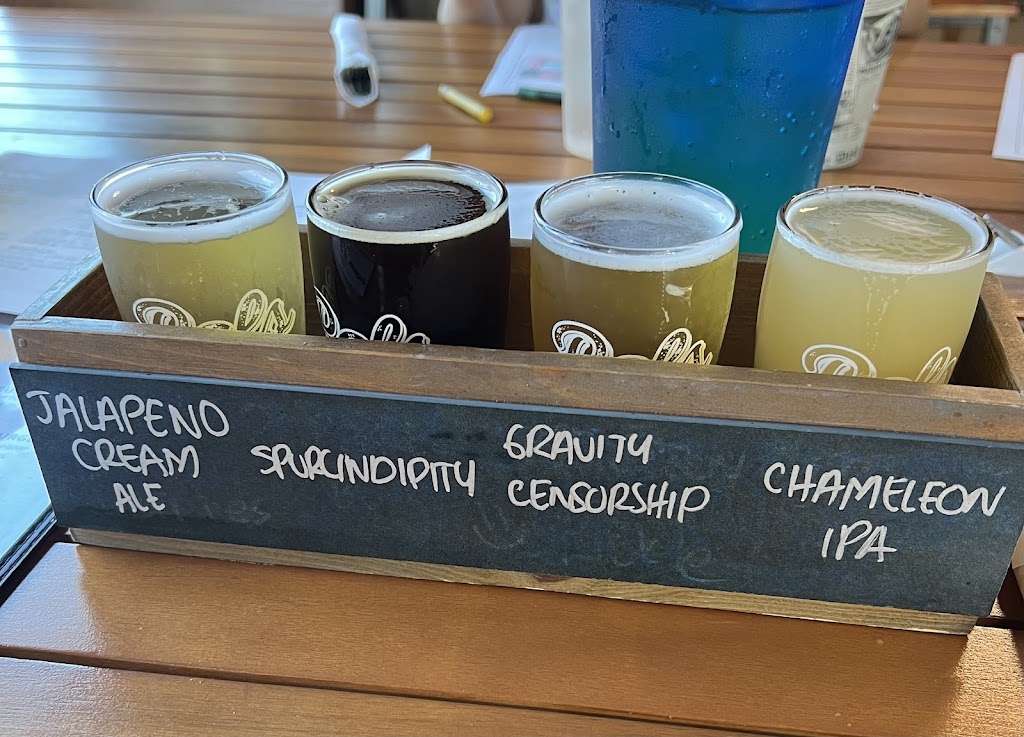 JALAPENO
CREAM
ALE
SPURCINDIPITY
GRAVITY
CENSORSHIP
CHAMELEON
IPA